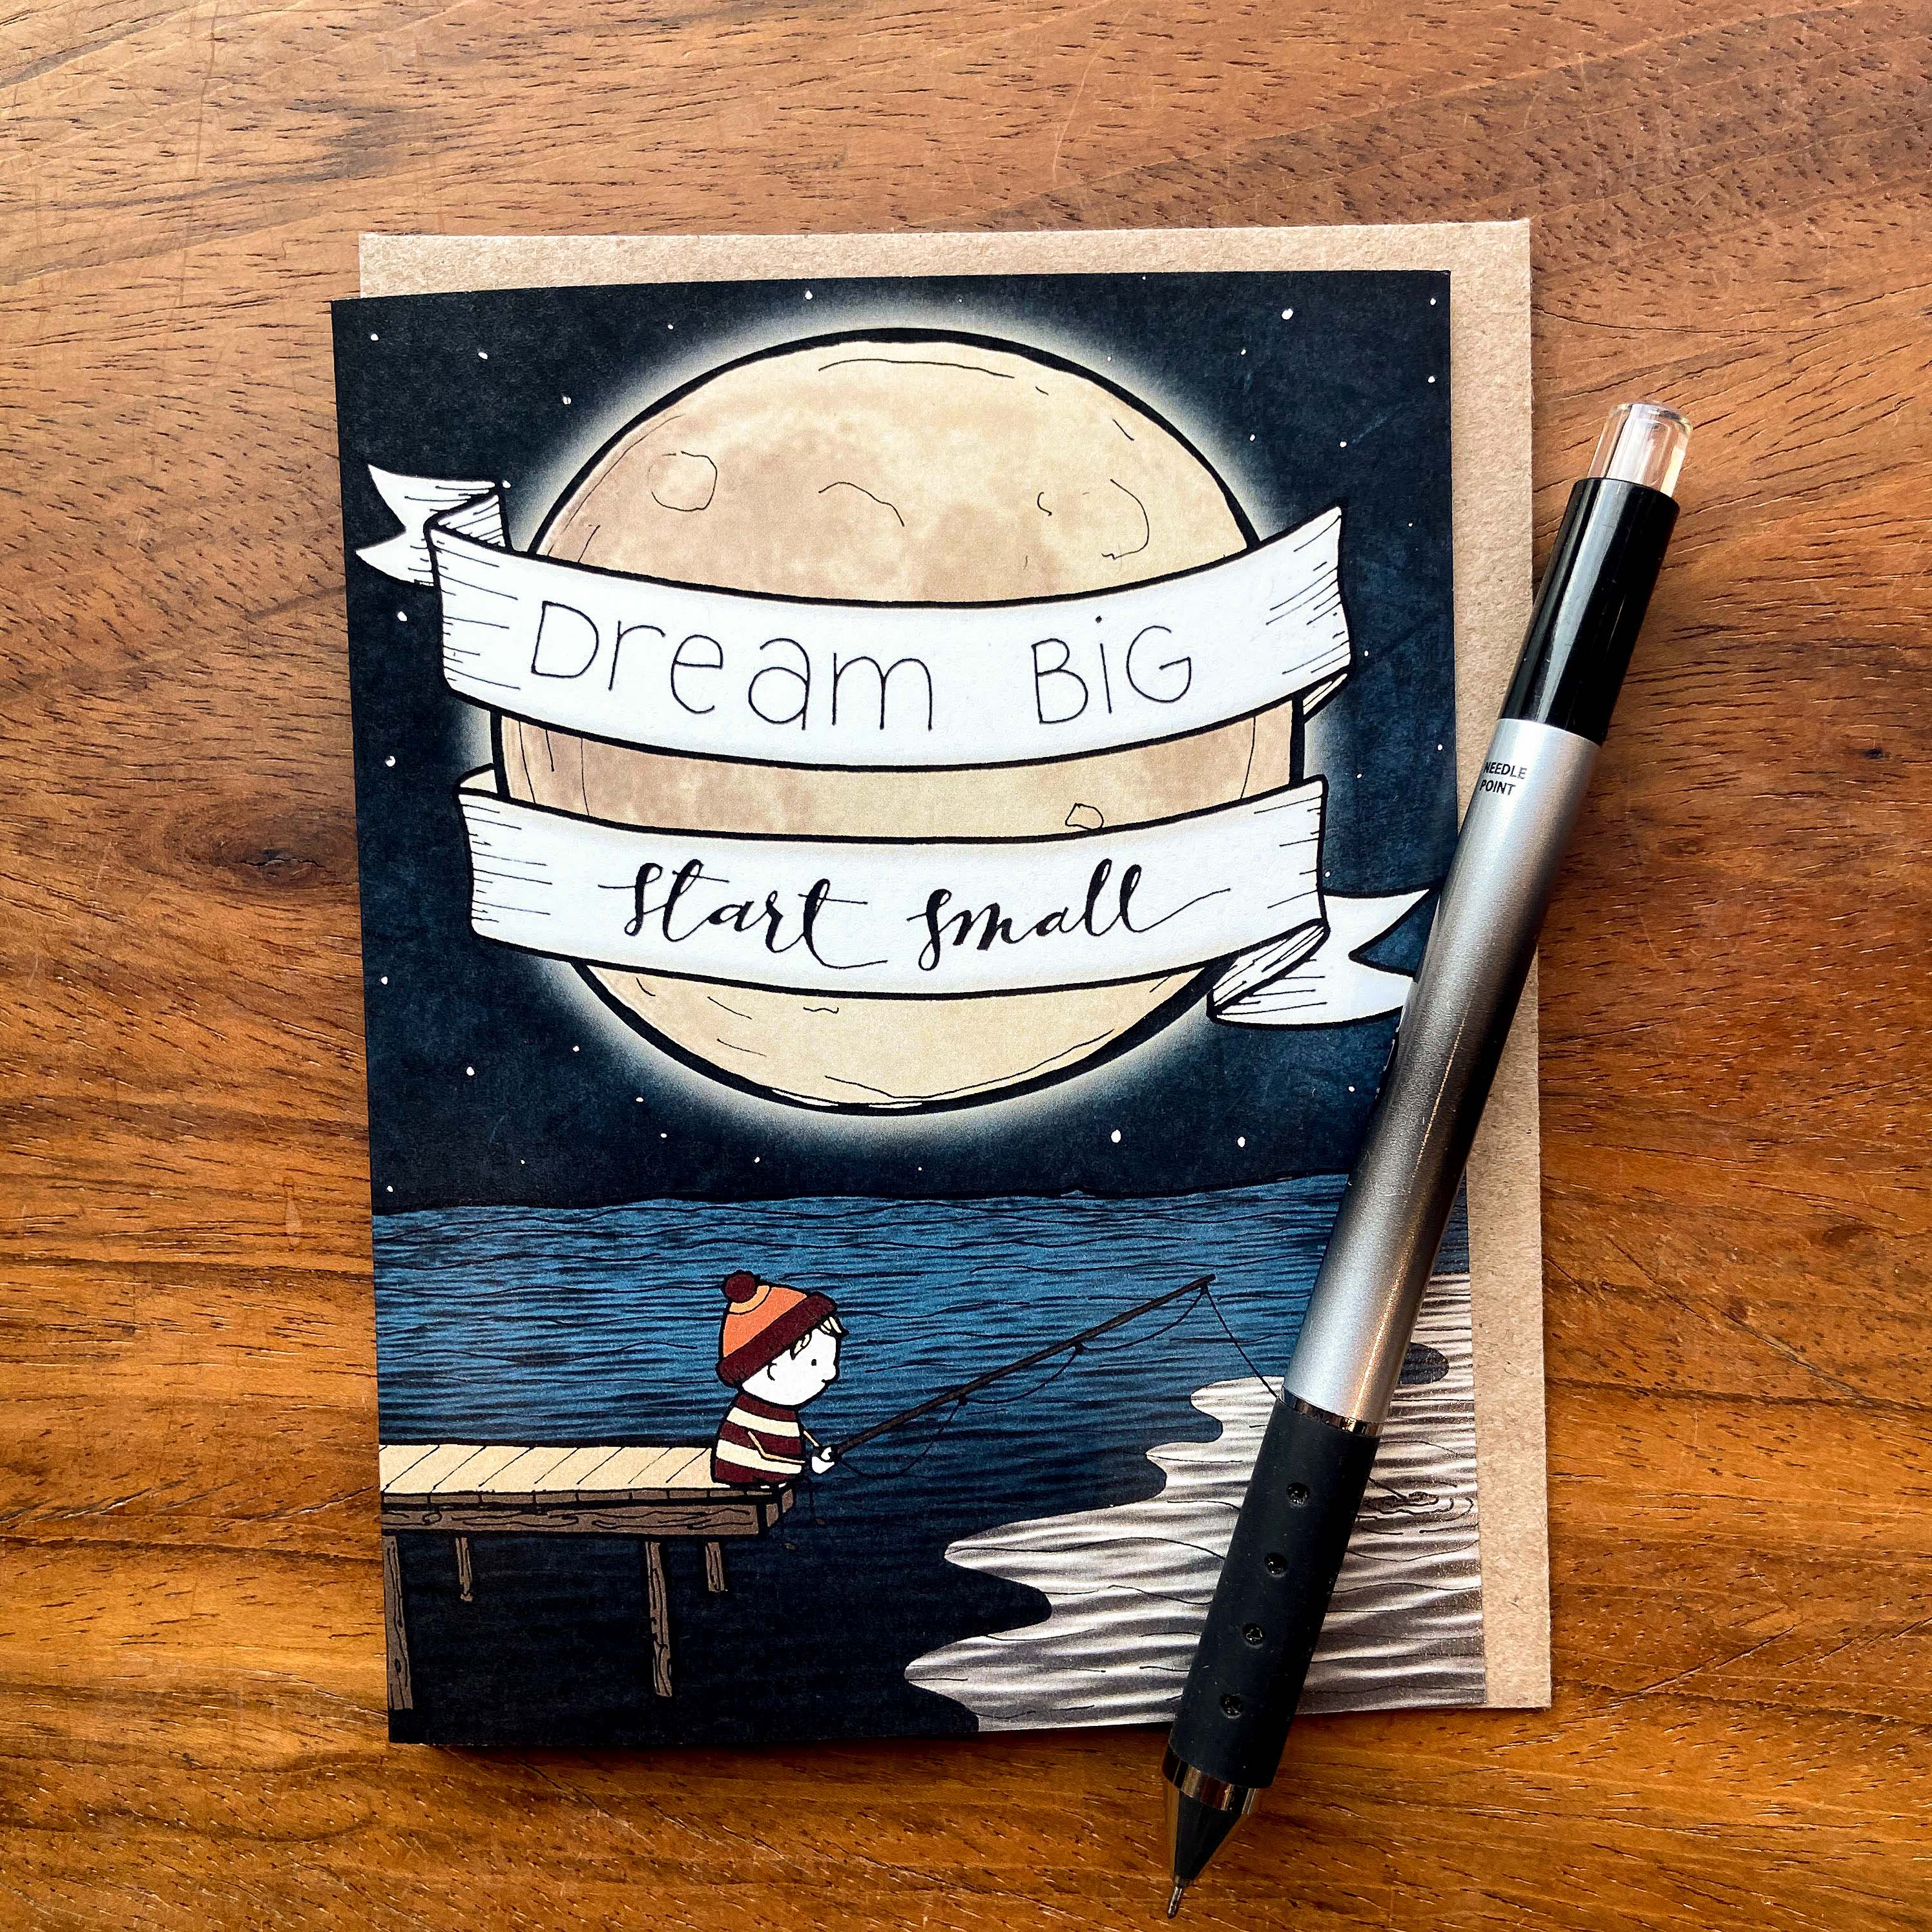 Dream BiG
start small
NEEDLE
POINT